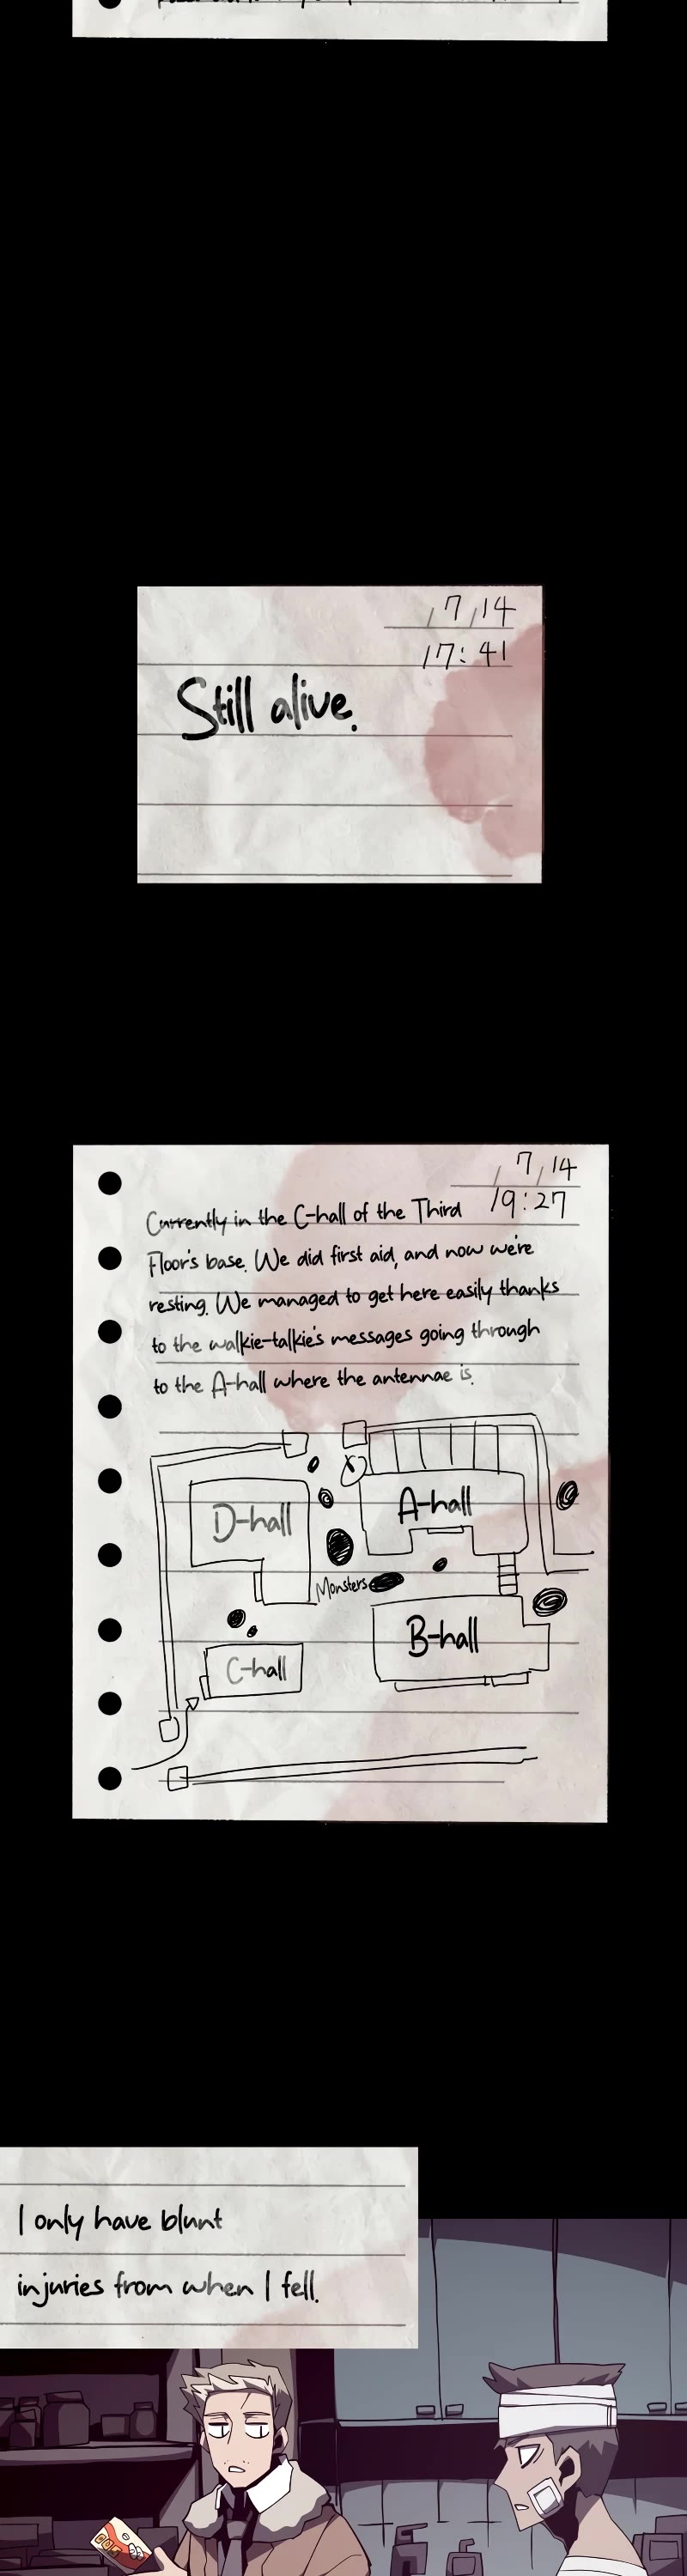 7 14
17:41
Still alive.
7 14
19:27
Currently in the C-hall of the Third
Floor's base. We did first aid, and now we're
resting. We managed to get here easily thanks
to the walkie-talkie's messages going through
to the A-hall where the antennae is.
D-hall
A-hall
Monsters
B-hall
C-hall
I only have blunt
injuries from when I fell.